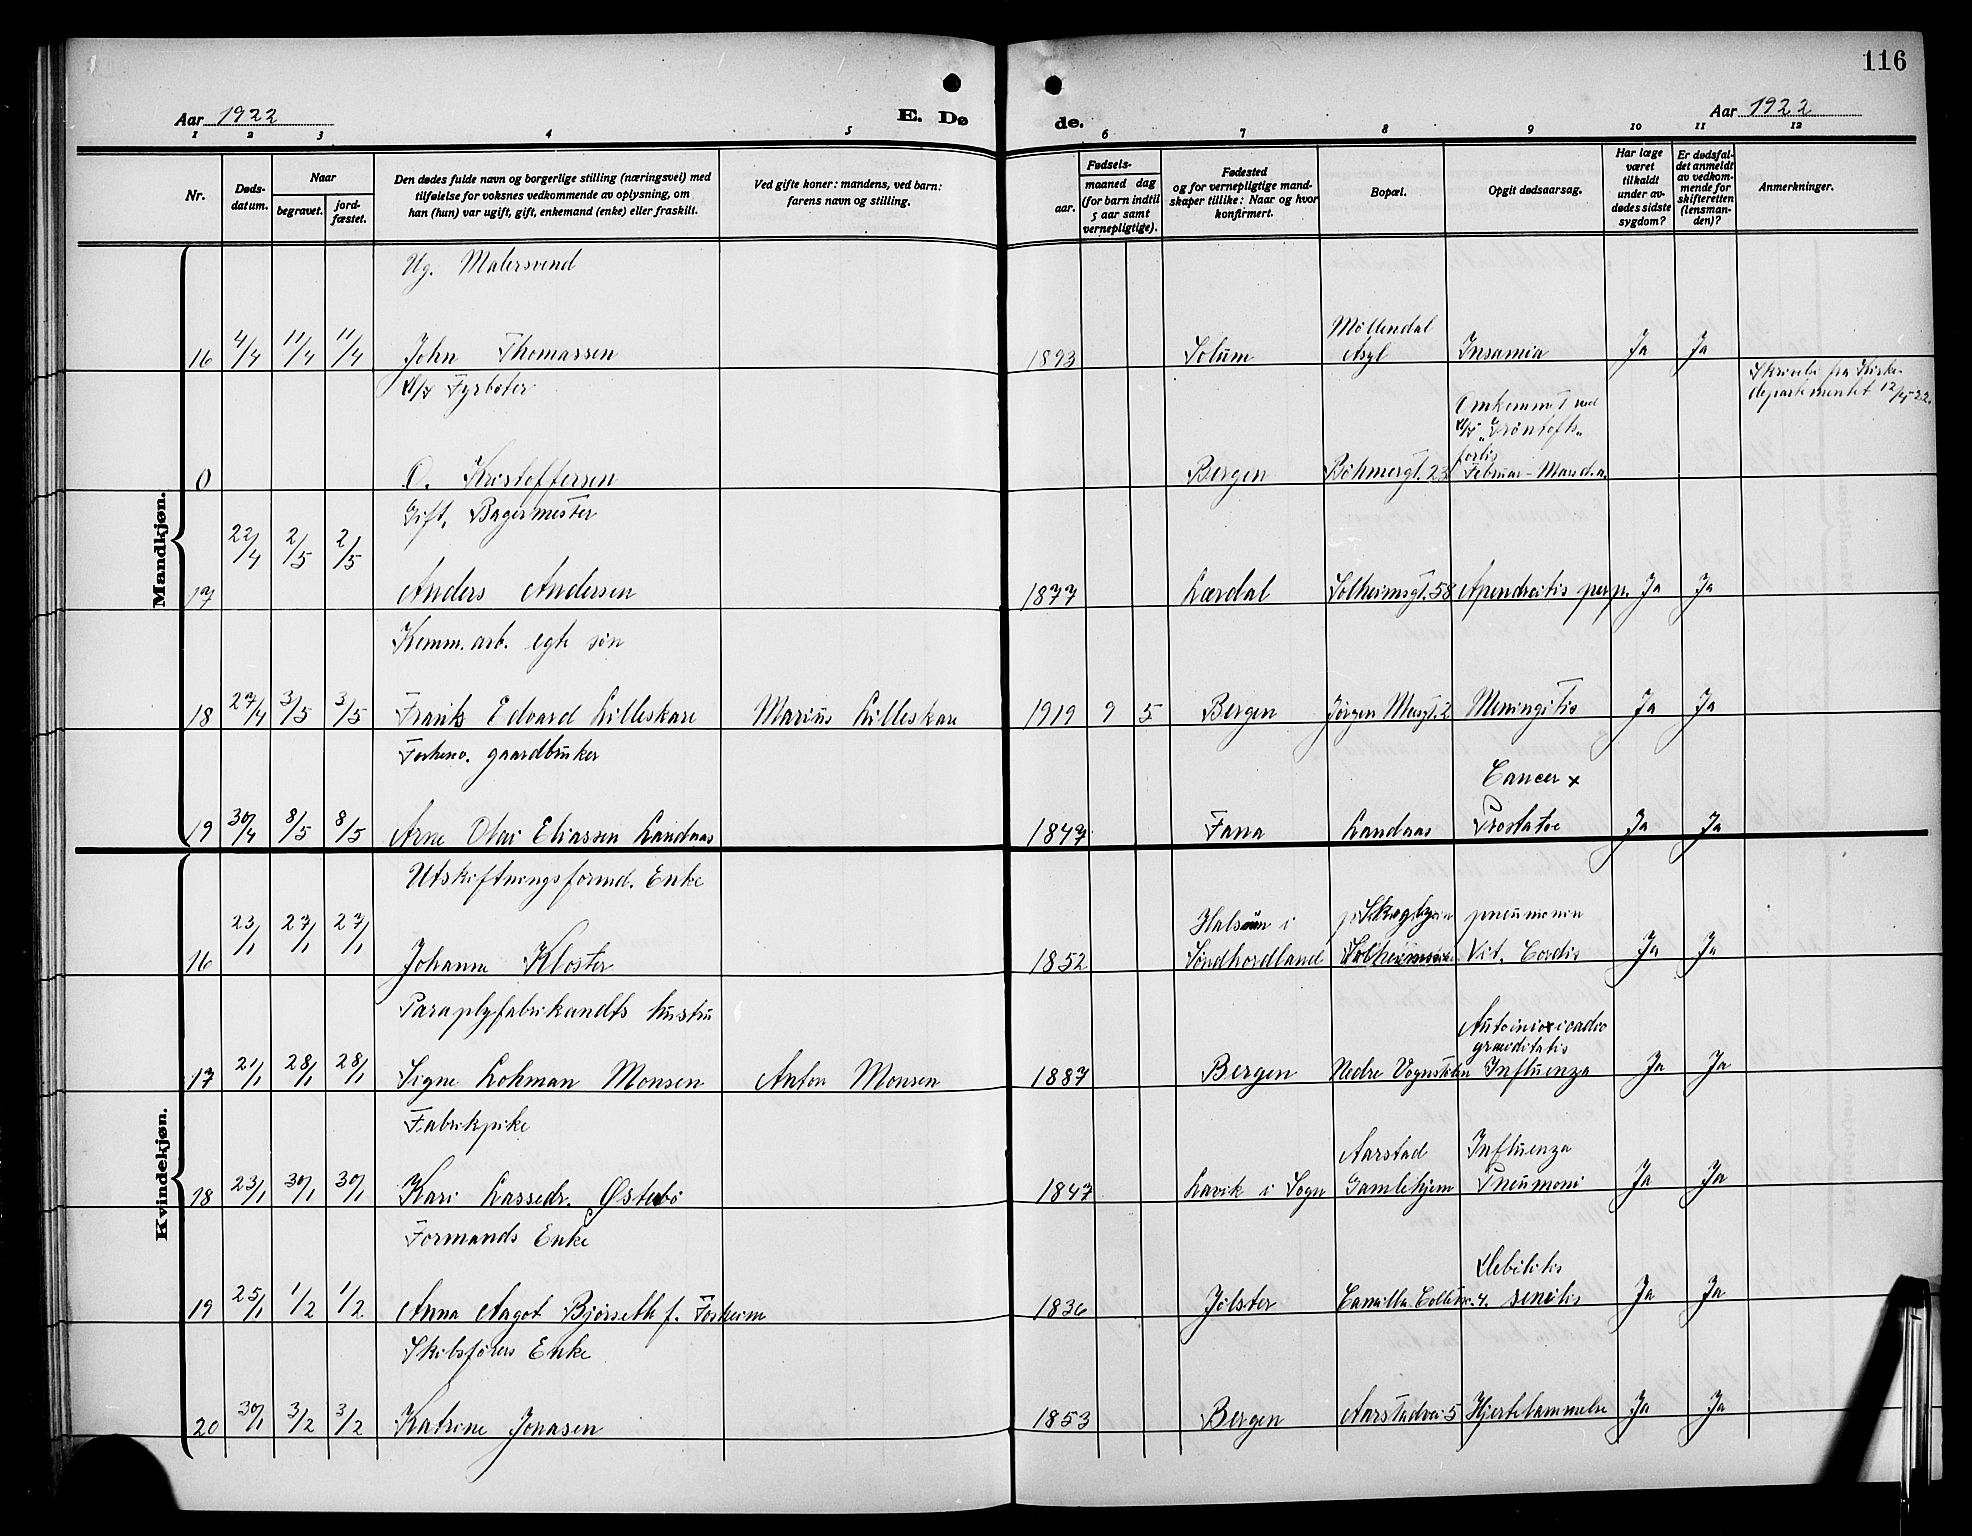 116
Aar 1922
E. Dø
de.
Aar 1922
1 2 3 4 5 6 7 8 9 10 11 12
Nr.
Døds-
datum.
Naar
begravet.
jord-
fæstet.
Den dødes fulde navn og borgerlige stilling (næringsvei) med
tilføielse for voksnes vedkommende av oplysning, om
han (hun) var ugift, gift, enkemand (enke) eller fraskilt.
Ved gifte koner: mandens, ved barn:
farens navn og stilling.
Fødsels-
aar.
maaned dag
(for barn indtil
5 aar samt
vernepligtige).
Fødested
og for vernepligtige mand-
skaper tillike: Naar og hvor
konfirmert.
Bopæl.
Opgit dødsaarsag.
Har læge
været
tilkaldt
under av-
dødes sidste
sygdom?
Er dødsfal-
det anmeldt
av vedkom-
mende for
skifteretten
(lensman-
den)?
Anmerkninger.
Mandkjøn.
Ug. Malersvend
Møllendal
16 4/4 11/4 11/4 John Thomassen 1893 Solum Asyl Insamia Ja Ja
D/S Fyrbøter
Skrivelse fra Kirke-
departementet 12/4-22.
Omkommet ved
D/S „Grøntofts„
forlis
0 O. Kristoffersen Bergen Bøhmergt. 23 Februar-Mars d.a.
Gift, Bagermester
17 22/4 2/5 2/5 Anders Andersen 1877 Lærdal Solheimsgt. 58 Apendicitis perp. Ja Ja
Komm. arb. egte søn
18 27/4 3/5 3/5 Frank Edvard Lilleskare Marius Lilleskare 1919 9 5 Bergen Jørgen Moesgt. 2 Meningitis Ja Ja
Forhenv. gaardbruker
Cancer
19 30/4 8/5 8/5 Arne Olai Eliassen Landaas 1847 Fana Landaas Prostatæ Ja Ja
Kvindekjøn.
Utskiftningsformd. Enke
Halsnøen i pneumonia
16 23/1 27/1 27/1 Johanne Kloster 1852 Søndhordland Vit. Cordis Ja Ja
Paraplyfabrikandts hustru
graviditatis
17 21/1 28/1 28/1 Signe Lohman Monsen Anton Monsen 1887 Bergen Nedre Vognstølen Influenza Ja Ja
Fabrikpike
Aarstad Influenza
18 23/1 30/1 30/1 Kari Lassedr. Østebø 1847 Lavik i Sogn Gamlehjem Pneumoni Ja Ja
Formands Enke
Debilitis
19 25/1 1/2 1/2 Anna Aagot Bjørseth f. Fosheim 1836 Jølster Camilla Colletsv. 4. senilis Ja Ja
Skibsførers Enke
20 30/1 3/2 3/2 Katrine Jonasen 1853 Bergen Aarstadvei 5 Hjertelammelse Ja Ja